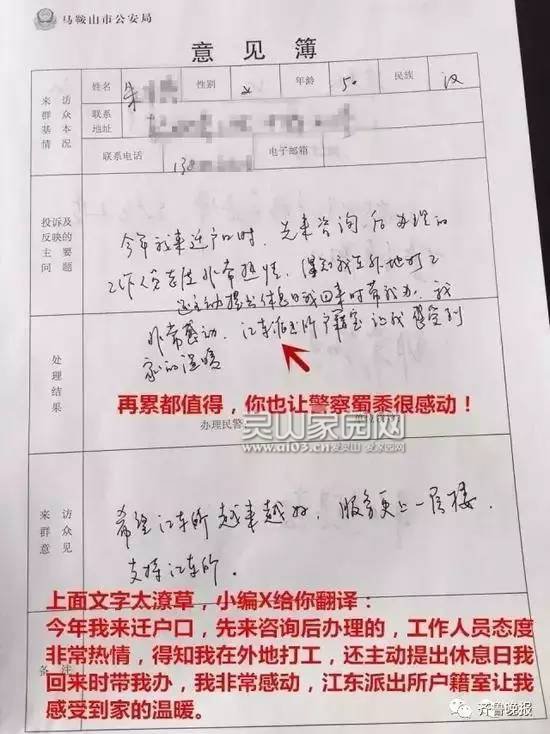 马鞍山市公安局
意见簿
来访群众基本情况
姓名 朱 性别 女 年龄 50 民族 汉
联系地址
联系电话 13 电子邮箱
投诉及反映的主要问题
今年我来迁户口时，先来咨询后办理的
工作人员态度非常热情，得知我在外地打工
还主动提出休息日我回来时带我办，我
非常感动，江东派出所户籍室让我感受到
家的温暖
处理结果
再累都值得，你也让警察蜀黍很感动！
办理民警
灵山家园网
www.ai03.cn 爱灵山 爱家园网
来访群众意见
希望江东所越来越好，服务更上一层楼。
支持江东所。
上面文字太潦草，小编X给你翻译：
今年我来迁户口，先来咨询后办理的，工作人员态度
非常热情，得知我在外地打工，还主动提出休息日我
回来时带我办，我非常感动，江东派出所户籍室让我
感受到家的温暖。
备注
齐鲁晚报